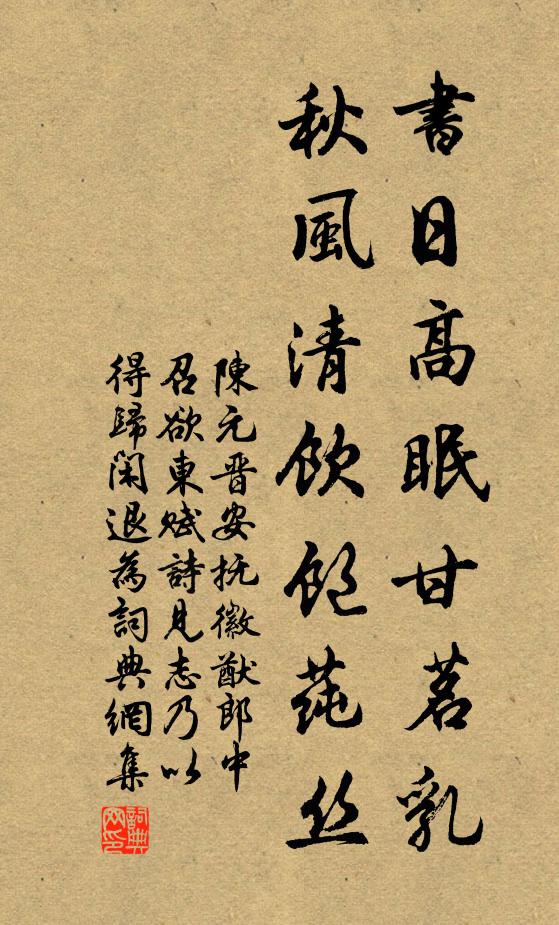 書日高眠甘茗乳
秋風清飲飽蒓丝
陳元晋安抚徽猷郎中
召欲東赋詩見志乃以
得歸閑退為詞典網集
詞典网印